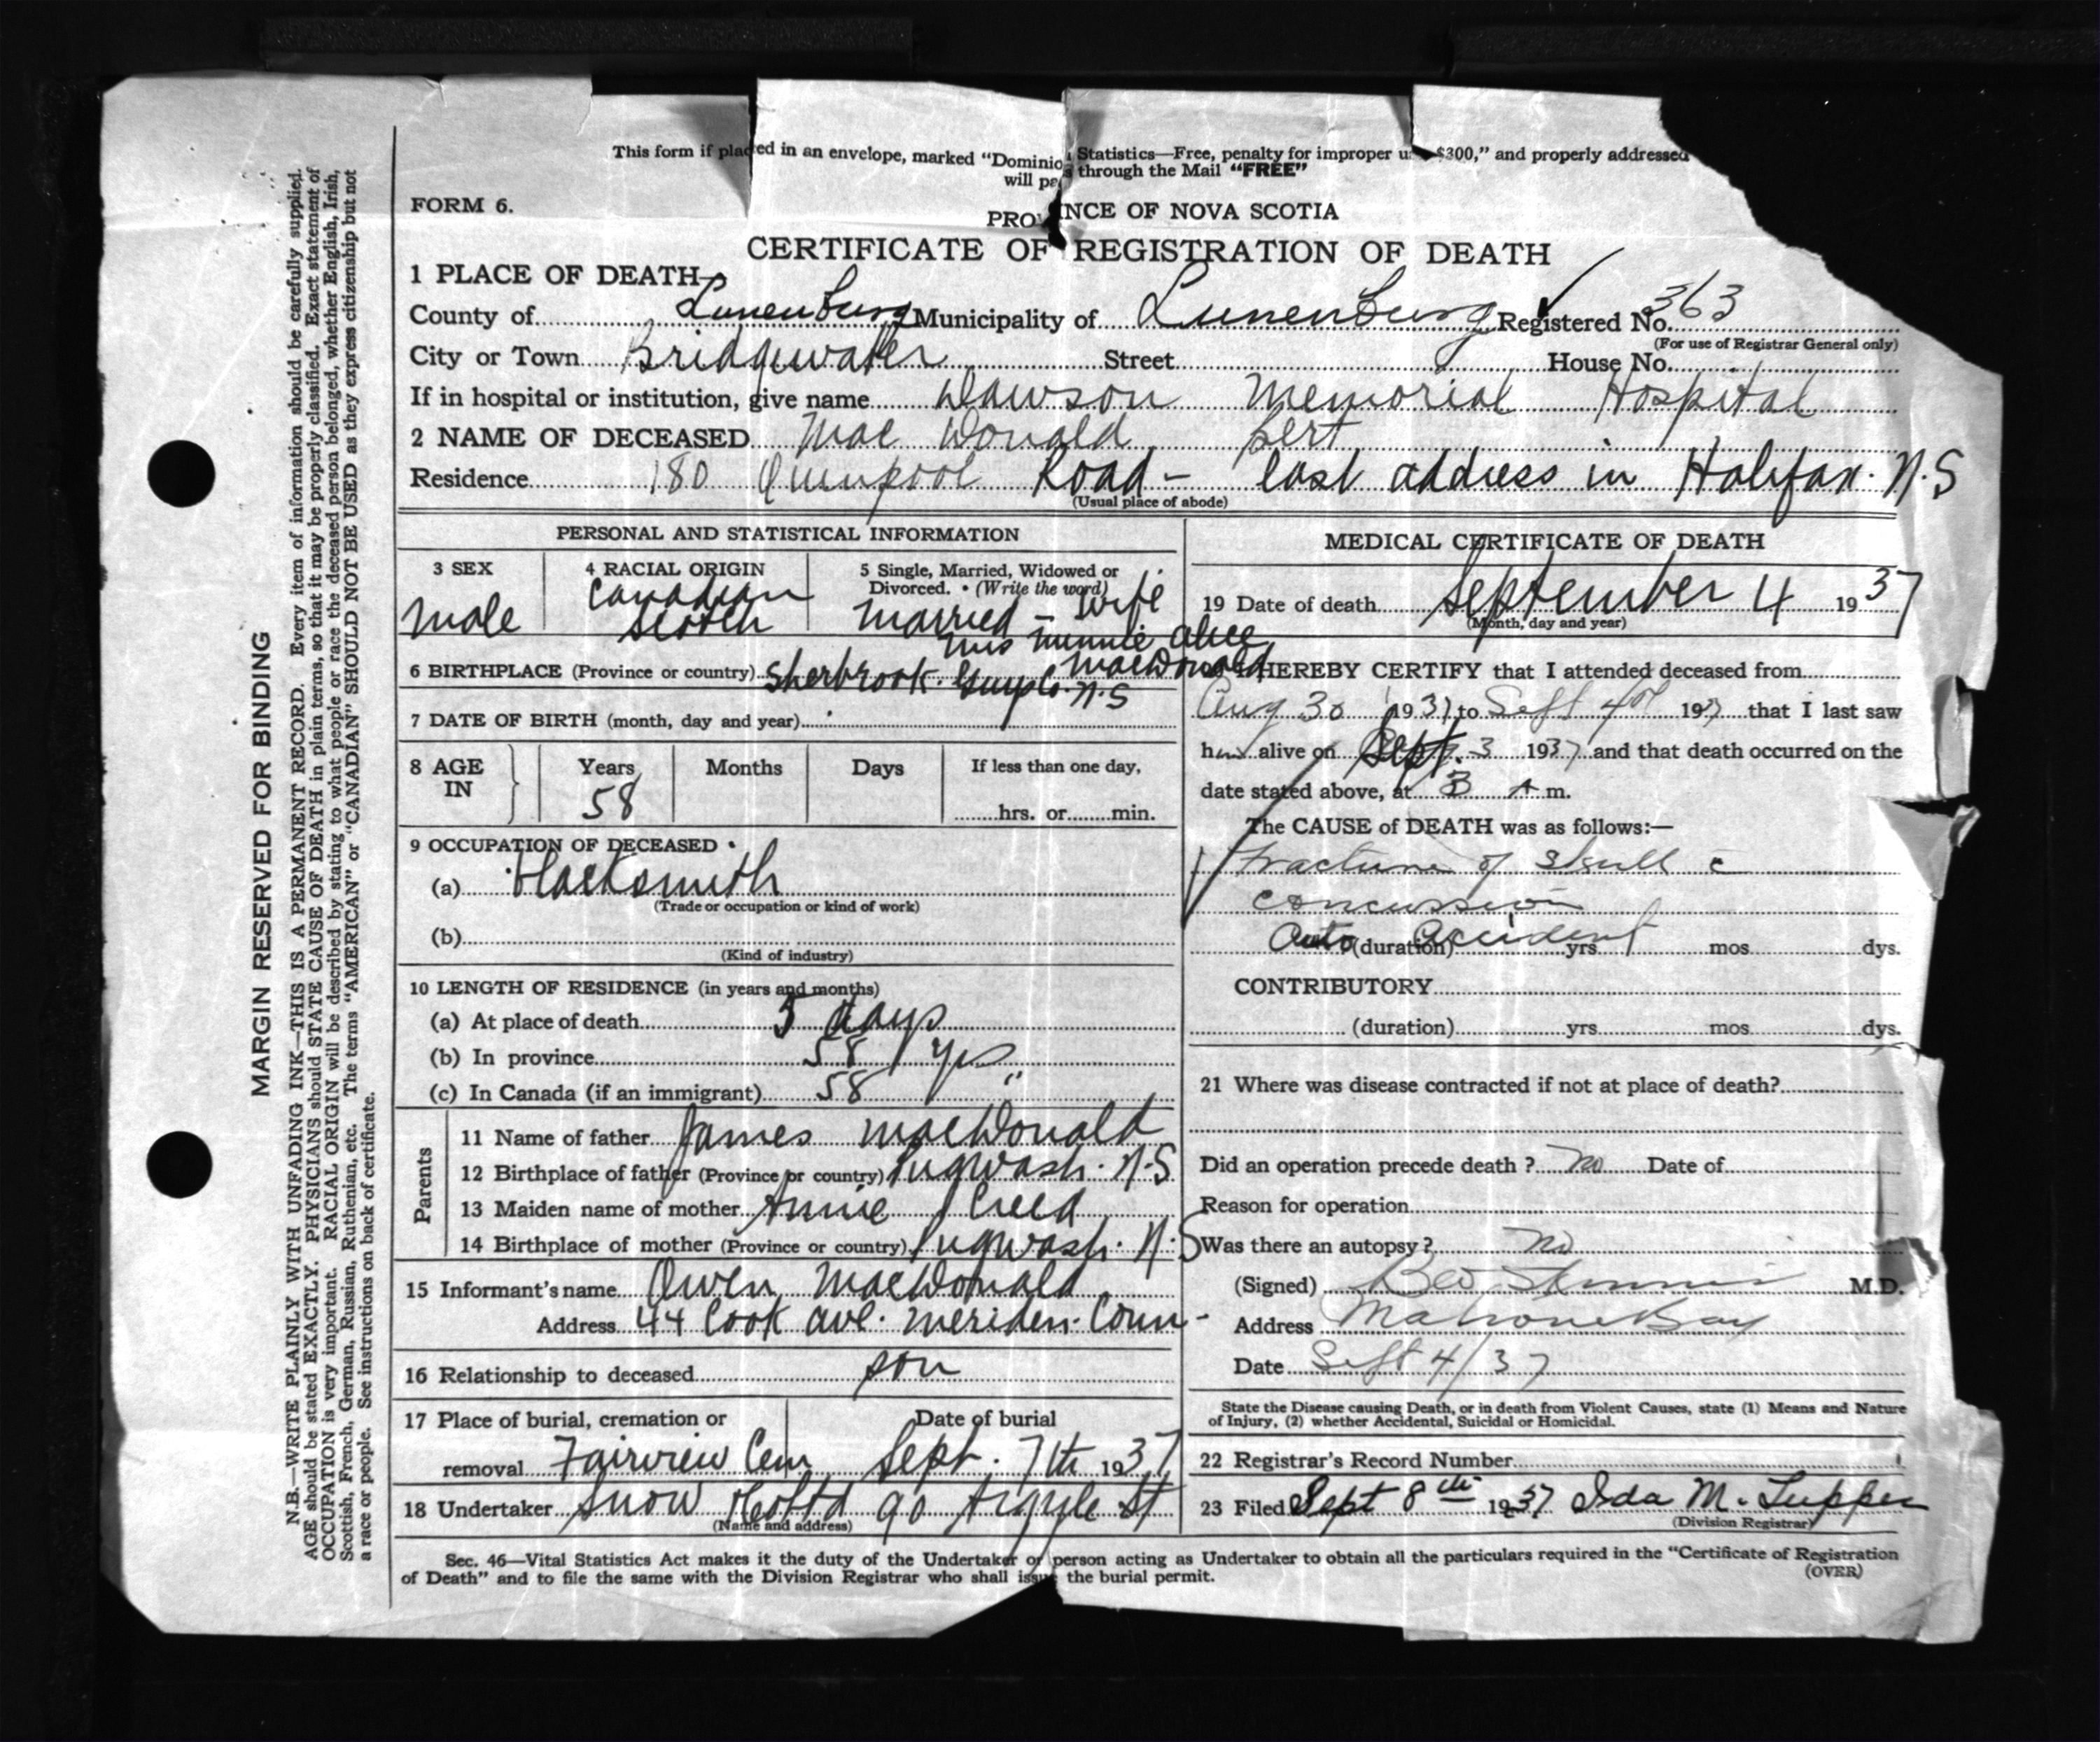 This form if placed in an envelope, marked "Dominion Statistics—Free, penalty for improper u $300," and properly addressed
will pass through the Mail "FREE"
FORM 6.
PROVINCE OF NOVA SCOTIA
CERTIFICATE OF REGISTRATION OF DEATH
1 PLACE OF DEATH—
County of Lunenburg Municipality of Lunenburg Registered No. 363
(For use of Registrar General only)
City or Town Bridgewater Street House No.
If in hospital or institution, give name Dawson Memorial Hospital
2 NAME OF DECEASED Mac Donald Bert
Residence 180 Quinpool Road - last address in Halifax. N.S
(Usual place of abode)
PERSONAL AND STATISTICAL INFORMATION
3 SEX
Male
4 RACIAL ORIGIN
Canadian
Scotch
5 Single, Married, Widowed or
Divorced. (Write the word)
Married - Wife
Mrs Minnie Alice
MacDonald
6 BIRTHPLACE (Province or country) Sherbrook. Guy Co. N.S
7 DATE OF BIRTH (month, day and year)
8 AGE IN Years Months Days If less than one day,
58 hrs. or min.
9 OCCUPATION OF DECEASED
(a) Blacksmith
(Trade or occupation or kind of work)
(b)
(Kind of industry)
10 LENGTH OF RESIDENCE (in years and months)
(a) At place of death 5 days
(b) In province 58 yrs
(c) In Canada (if an immigrant) 58 "
Parents
11 Name of father James MacDonald
12 Birthplace of father (Province or country) Pugwash. N.S
13 Maiden name of mother Annie Creed
14 Birthplace of mother (Province or country) Pugwash. N.S
15 Informant's name Owen MacDonald
Address 44 Cook Ave. Meriden. Conn-
16 Relationship to deceased son
17 Place of burial, cremation or Date of burial
removal Fairview Cem Sept. 7th 1937
18 Undertaker Snow & Co Ltd 90 Argyle St
(Name and address)
MEDICAL CERTIFICATE OF DEATH
19 Date of death September 4 1937
(Month, day and year)
HEREBY CERTIFY that I attended deceased from
Aug 30 1937 to Sept 4th 1937 that I last saw
him alive on Sept. 3 1937 and that death occurred on the
date stated above, at 3 A m.
The CAUSE of DEATH was as follows:—
Fracture of skull c̄
concussion
Auto Accident
(duration) yrs mos dys.
CONTRIBUTORY
(duration) yrs mos dys.
21 Where was disease contracted if not at place of death?
Did an operation precede death? No Date of
Reason for operation
Was there an autopsy? No
(Signed) M.D.
Address Mahone Bay
Date Sept 4/37
State the Disease causing Death, or in death from Violent Causes, state (1) Means and Nature
of Injury, (2) whether Accidental, Suicidal or Homicidal.
22 Registrar's Record Number
23 Filed Sept 8th 1937 Ida M. Tupper
(Division Registrar)
Sec. 46—Vital Statistics Act makes it the duty of the Undertaker or person acting as Undertaker to obtain all the particulars required in the "Certificate of Registration
of Death" and to file the same with the Division Registrar who shall issue the burial permit.
(OVER)
MARGIN RESERVED FOR BINDING
N.B.—WRITE PLAINLY WITH UNFADING INK—THIS IS A PERMANENT RECORD. Every item of information should be carefully supplied.
AGE should be stated EXACTLY. PHYSICIANS should STATE CAUSE OF DEATH in plain terms, so that it may be properly classified. Exact statement of
OCCUPATION is very important. RACIAL ORIGIN will be described by stating to what people or race the deceased person belonged, whether English, Irish,
Scottish, French, German, Russian, Ruthenian, etc. The terms "AMERICAN" or "CANADIAN" SHOULD NOT BE USED as they express citizenship but not
a race or people. See instructions on back of certificate.